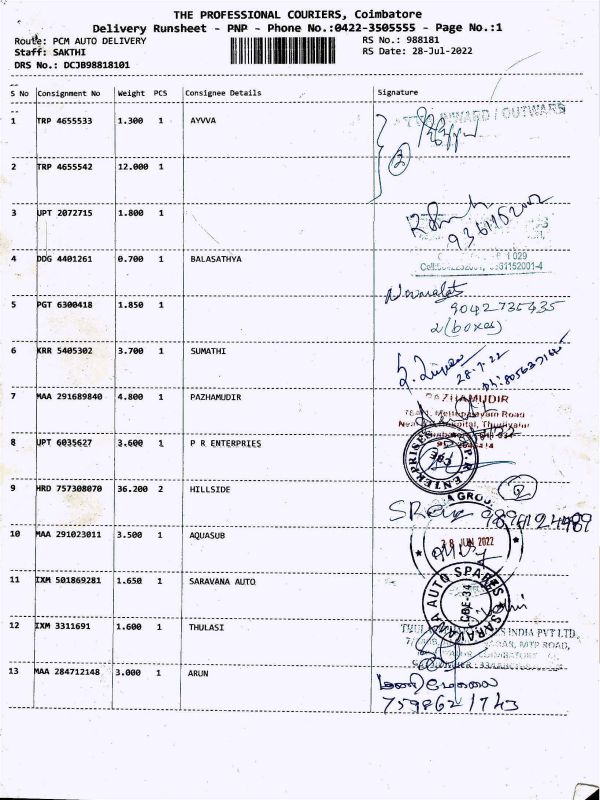 THE PROFESSIONAL COURIERS, Coimbatore
Delivery Runsheet - PNP - Phone No.:0422-3505555 - Page No.:1
Route: PCM AUTO DELIVERY
RS No.: 988181
Staff: SAKTHI
RS Date: 28-Jul-2022
DRS No.: DCJB98818101
S No Consignment No Weight PCS Consignee Details Signature
1 TRP 4655533 1.300 1 AYVVA
INWARD / OUTWARD
2 TRP 4655542 12.000 1
2
3 UPT 2072715 1.800 1
9361152002
4 DDG 4401261 0.700 1 BALASATHYA
5 PGT 6300418 1.850 1
9042735435
2 (boxes)
6 KRR 5405302 3.700 1 SUMATHI
28.7.22
7 MAA 291689840 4.800 1 PAZHAMUDIR
PAZHAMUDIR
Mettupalayam Road
Hospital, Thudiyalur
8 UPT 6035627 3.600 1 P R ENTERPRIES
P.R. ENTERPRISES
9 HRD 757308070 36.200 2 HILLSIDE
2
10 MAA 291023011 3.500 1 AQUASUB
2022
11 IXM 501869281 1.650 1 SARAVANA AUTO
SARAVANA AUTO SPARES
CBE-34
12 IXM 3311691 1.600 1 THULASI
INDIA PVT LTD.
MTP ROAD,
13 MAA 284712148 3.000 1 ARUN
மணிமேகலை
7598621743